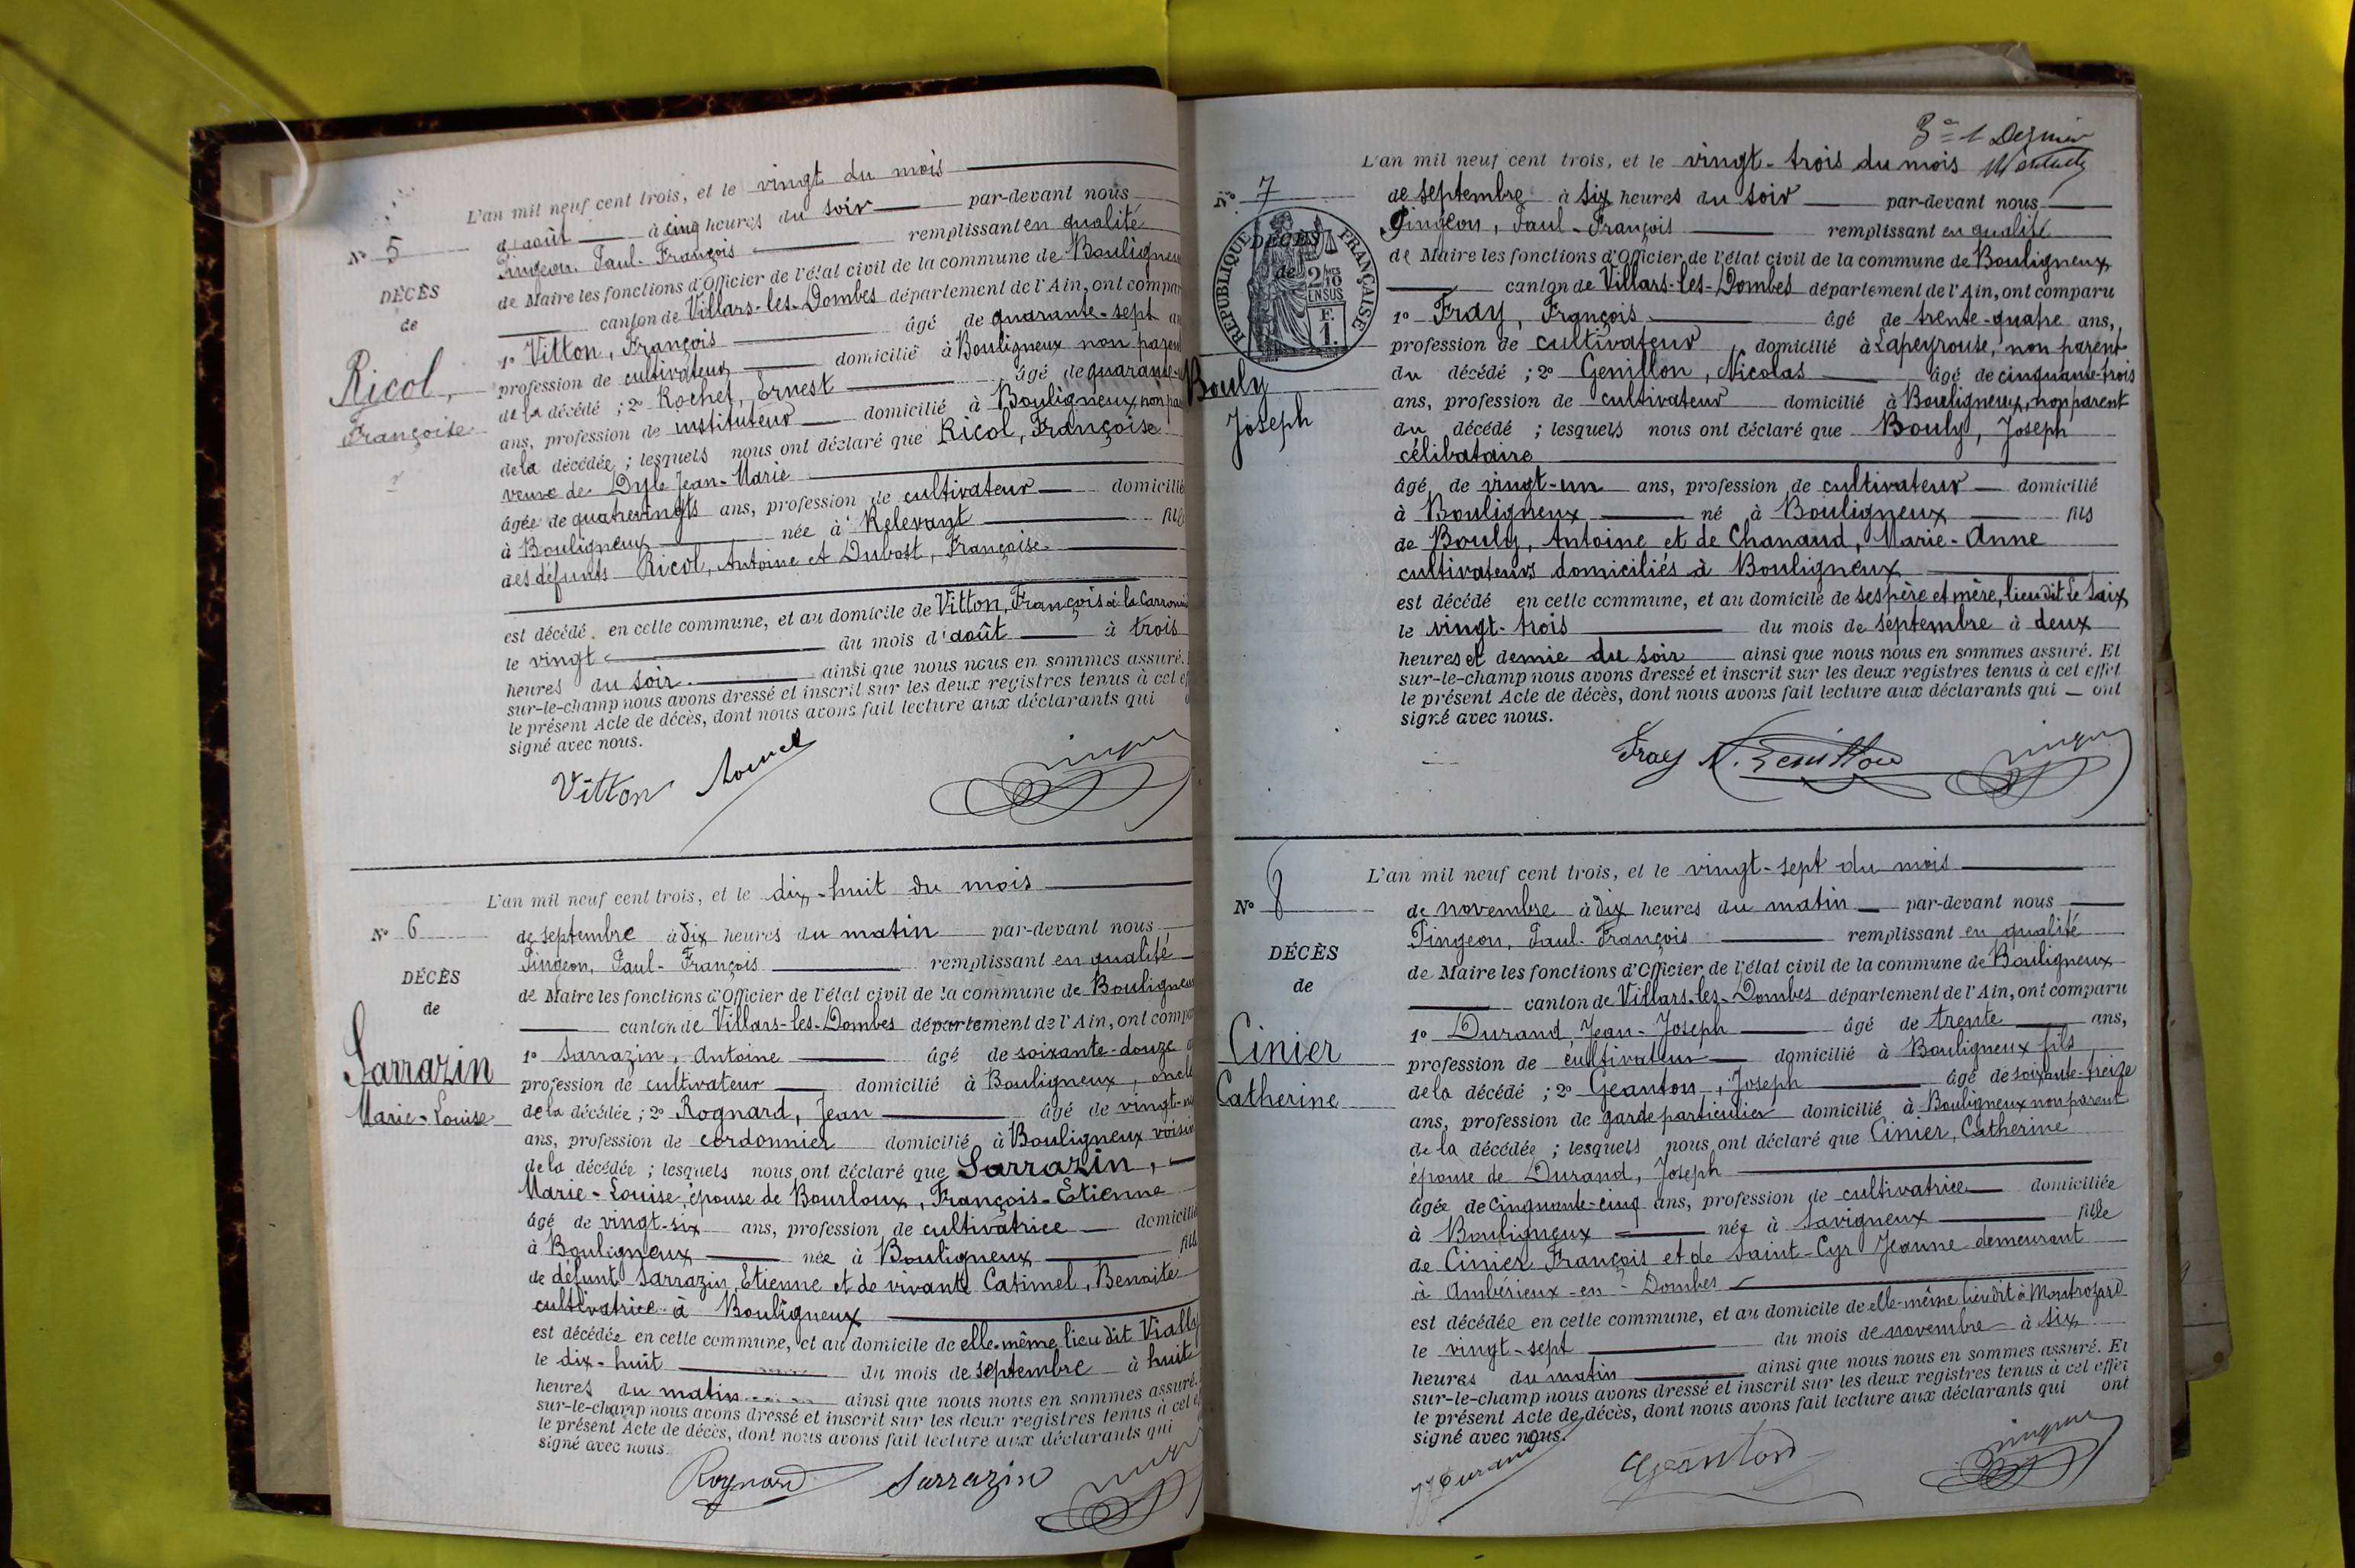 L'an mil neuf cent trois, et le vingt du mois
N° 5
d'août à cinq heures du soir par-devant nous
Pingeon, Paul-François remplissant en qualité
DÉCÈS
de Maire les fonctions d'Officier de l'état civil de la commune de Bouligneux
de
canton de Villars-les-Dombes département de l'Ain, ont compar
1° Vitton, François âgé de quarante-sept an
Ricol,
profession de cultivateur domicilié à Bouligneux non paren
Françoise
de la décédé ; 2° Rochet, Ernest âgé de quarante-
ans, profession de instituteur domicilié à Bouligneux, non pa
de la décédée ; lesquels nous ont déclaré que Ricol, Françoise
veuve de Dyle Jean-Marie
âgée de quatrevingts ans, profession de cultivateur domicilié
à Bouligneux née à Relevant fille
des défunts Ricol, Antoine et Dubost, Françoise
est décédé en cette commune, et au domicile de Vitton, François à la
le vingt du mois d'août à trois
heures du soir ainsi que nous nous en sommes assuré.
sur-le-champ nous avons dressé et inscrit sur les deux registres tenus à cet ef
le présent Acte de décès, dont nous avons fait lecture aux déclarants qui
signé avec nous.
Vitton
L'an mil neuf cent trois, et le dix-huit du mois
N° 6
de septembre à dix heures du matin par-devant nous
Pingeon, Paul-François remplissant en qualité
DÉCÈS
de Maire les fonctions d'Officier de l'état civil de la commune de Bouligneux
de
canton de Villars-les-Dombes département de l'Ain, ont compa
1° Sarrazin, Antoine âgé de soixante-douze
Sarrazin
profession de cultivateur domicilié à Bouligneux, oncle
Marie-Louise
de la décédée ; 2° Rognard, Jean âgé de vingt-
ans, profession de cordonnier domicilié à Bouligneux voisin
de la décédée ; lesquels nous ont déclaré que Sarrazin,
Marie-Louise, épouse de Bourloux, François-Etienne
âgé de vingt-six ans, profession de cultivatrice domicilié
à Bouligneux née à Bouligneux fille
de défunt Sarrazin, Etienne et de vivante Catimel, Benoite
cultivatrice à Bouligneux
est décédée en cette commune, et au domicile de elle-même, lieu dit Vially
le dix-huit du mois de septembre à huit
heures du matin ainsi que nous nous en sommes assuré.
sur-le-champ nous avons dressé et inscrit sur les deux registres tenus à cet e
le présent Acte de décès, dont nous avons fait lecture aux déclarants qui
signé avec nous.
Rognard Sarrazin
L'an mil neuf cent trois, et le vingt-trois du mois
N° 7
de septembre à six heures du soir par-devant nous
Pingeon, Paul-François remplissant en qualité
DÉCÈS
de
RÉPUBLIQUE FRANÇAISE
2/10
EN SUS
F.
1.
de Maire les fonctions d'Officier de l'état civil de la commune de Bouligneux
canton de Villars-les-Dombes département de l'Ain, ont comparu
1° Fray, François âgé de trente-quatre ans,
profession de cultivateur, domicilié à Lapeyrouse, non parent
Bouly
Joseph
du décédé ; 2° Genillon, Nicolas âgé de cinquante-trois
ans, profession de cultivateur domicilié à Bouligneux, non parent
du décédé ; lesquels nous ont déclaré que Bouly, Joseph
célibataire
âgé de vingt-un ans, profession de cultivateur domicilié
à Bouligneux né à Bouligneux fils
de Bouly, Antoine et de Chanaud, Marie-Anne
cultivateurs domiciliés à Bouligneux
est décédé en cette commune, et au domicile de ses père et mère, lieu dit Le Saix
le vingt-trois du mois de septembre à deux
heures et demie du soir ainsi que nous nous en sommes assuré. Et
sur-le-champ nous avons dressé et inscrit sur les deux registres tenus à cet effet
le présent Acte de décès, dont nous avons fait lecture aux déclarants qui ont
signé avec nous.
Fray N. Genillon
L'an mil neuf cent trois, et le vingt-sept du mois
N° 8
de novembre à dix heures du matin par-devant nous
Pingeon, Paul-François remplissant en qualité
DÉCÈS
de Maire les fonctions d'Officier de l'état civil de la commune de Bouligneux
de
canton de Villars-les-Dombes département de l'Ain, ont comparu
1° Durand, Jean-Joseph âgé de trente ans,
Cinier
profession de cultivateur domicilié à Bouligneux fils
Catherine
de la décédé ; 2° Geanton, Joseph âgé de soixante-treize
ans, profession de garde particulier domicilié à Bouligneux non parent
de la décédée ; lesquels nous ont déclaré que Cinier, Catherine
épouse de Durand, Joseph
âgée de cinquante-cinq ans, profession de cultivatrice domiciliée
à Bouligneux née à Savigneux fille
de Cinier François et de Saint-Cyr Jeanne demeurant
à Ambérieux-en-Dombes
est décédée en cette commune, et au domicile de elle-même lieu dit à Montrozard
le vingt-sept du mois de novembre à six
heures du matin ainsi que nous nous en sommes assuré. Et
sur-le-champ nous avons dressé et inscrit sur les deux registres tenus à cet effet
le présent Acte de décès, dont nous avons fait lecture aux déclarants qui ont
signé avec nous.
JJ Durand Geanton